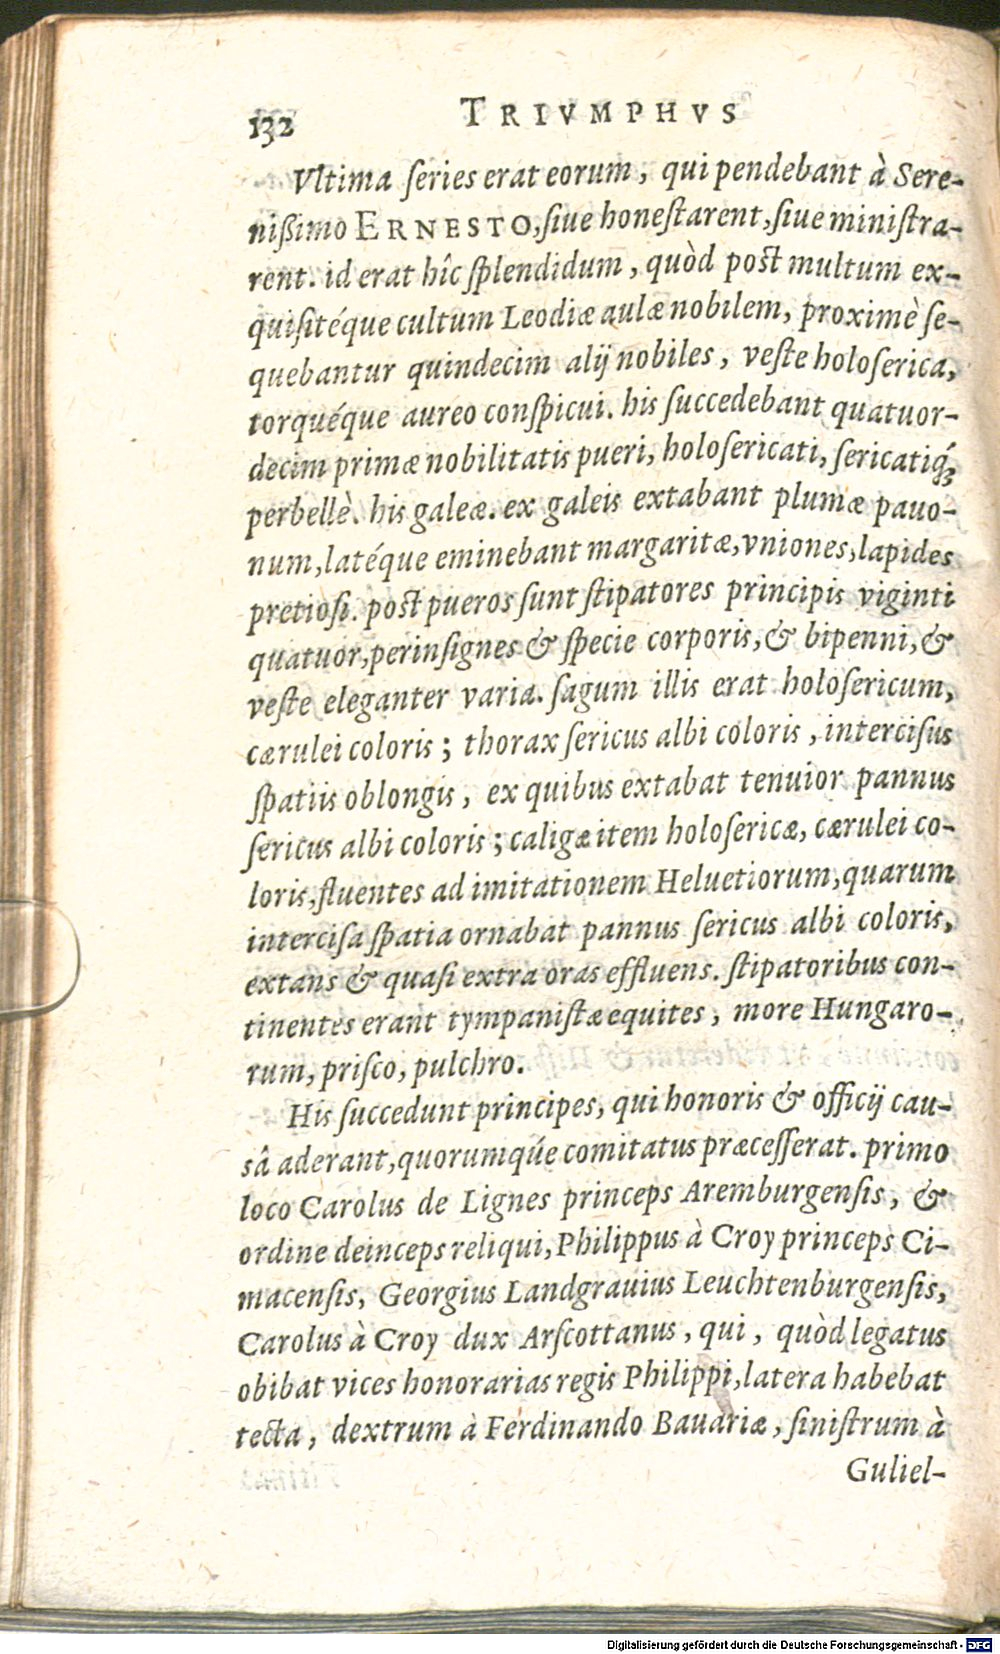 132 TRIVMPHVS
Vltima ſeries erat eorum, qui pendebant à Sere-
nißimo ERNESTO, ſiue honeſtarent, ſiue miniſtra-
rent. id erat hîc ſplendidum, quòd post multum ex-
quiſitéque cultum Leodiæ aulæ nobilem, proximè ſe-
quebantur quindecim alij nobiles, veſte holoſerica,
torquéque aureo conſpicui. his ſuccedebant quatuor-
decim primæ nobilitatis pueri, holoſericati, ſericatiq́;
perbellè. his galeæ. ex galeis extabant plumæ pauo-
num, latéque eminebant margaritæ, vniones, lapides
pretioſi. post pueros ſunt ſtipatores principis viginti
quatuor, perinſignes & ſpecie corporis, & bipenni, &
veſte eleganter varia. ſagum illis erat holoſericum,
cærulei coloris; thorax ſericus albi coloris, interciſus
ſpatiis oblongis, ex quibus extabat tenuior pannus
ſericus albi coloris; caligæ item holoſericæ, cærulei co-
loris, fluentes ad imitationem Heluetiorum, quarum
interciſa ſpatia ornabat pannus ſericus albi coloris,
extans & quaſi extra oras effluens. ſtipatoribus con-
tinentes erant tympaniſtæ equites, more Hungaro-
rum, priſco, pulchro.
His ſuccedunt principes, qui honoris & officij cau-
sâ aderant, quorumqúe comitatus præceſſerat. primo
loco Carolus de Lignes princeps Aremburgenſis, &
ordine deinceps reliqui, Philippus à Croy princeps Ci-
macenſis, Georgius Landgrauius Leuchtenburgenſis,
Carolus à Croy dux Arſcottanus, qui, quòd legatus
obibat vices honorarias regis Philippi, latera habebat
tecta, dextrum à Ferdinando Bauariæ, ſiniſtrum à
Guliel-
Digitalisierung gefördert durch die Deutsche Forschungsgemeinschaft - DFG